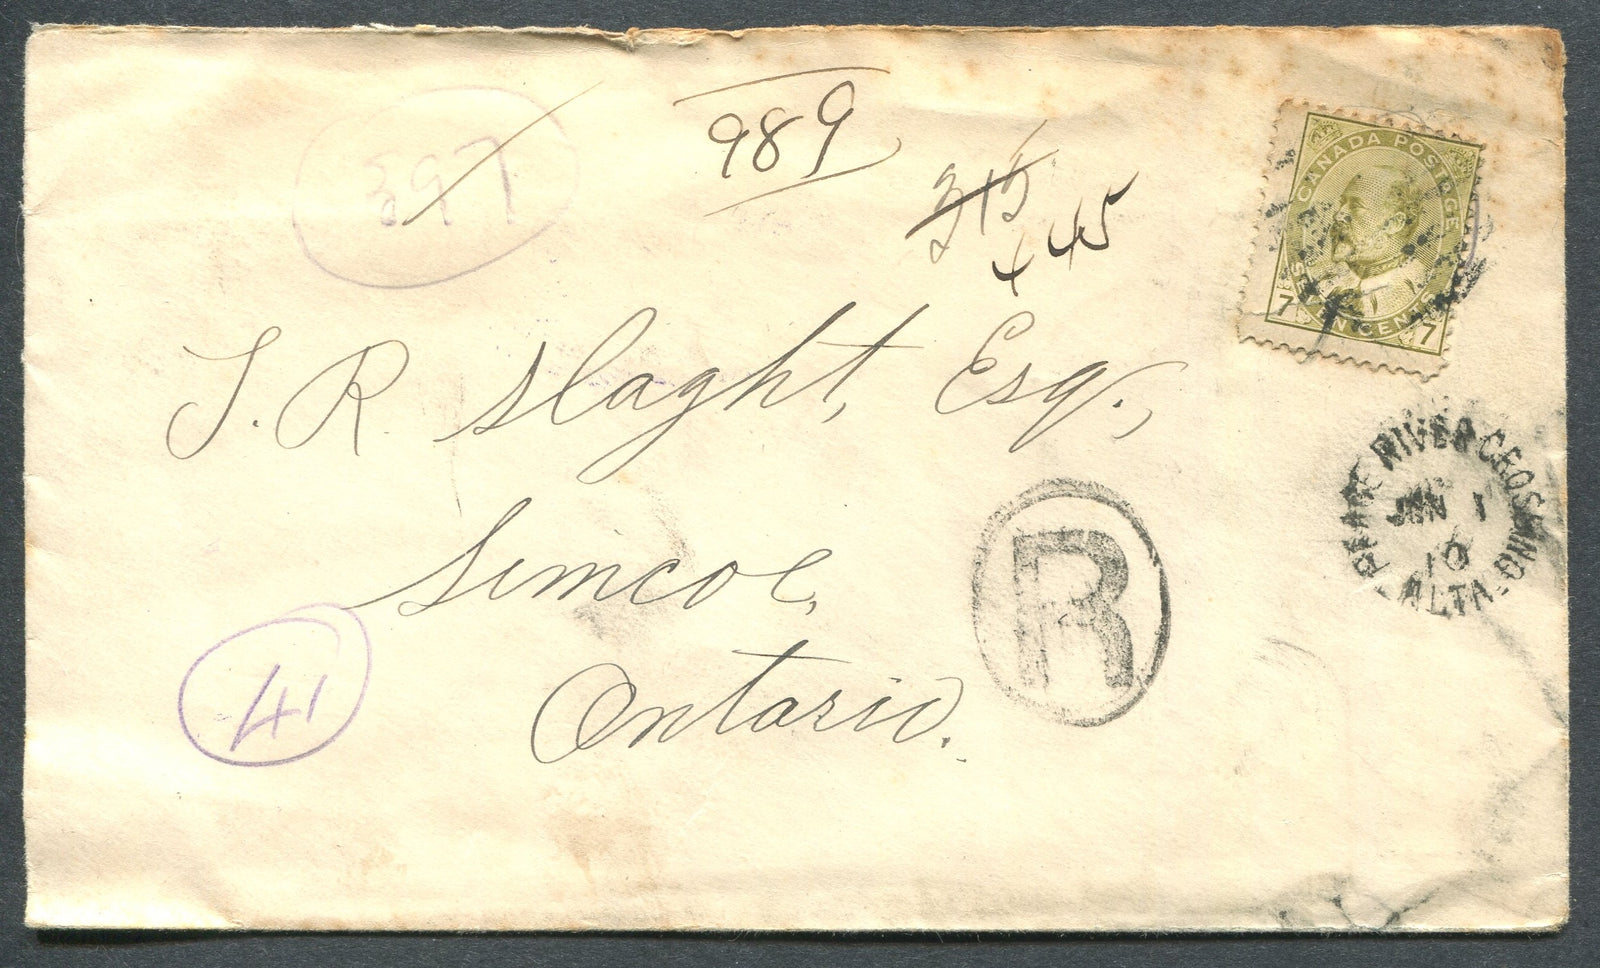 397
989
313
445
CANADA POSTAGE
SEVEN CENTS
7 7
T. R. Slaght, Esq.,
PEACE RIVER CROSSING
JUN 1
10
ALTA.
R
Simcoe,
41
Ontario.